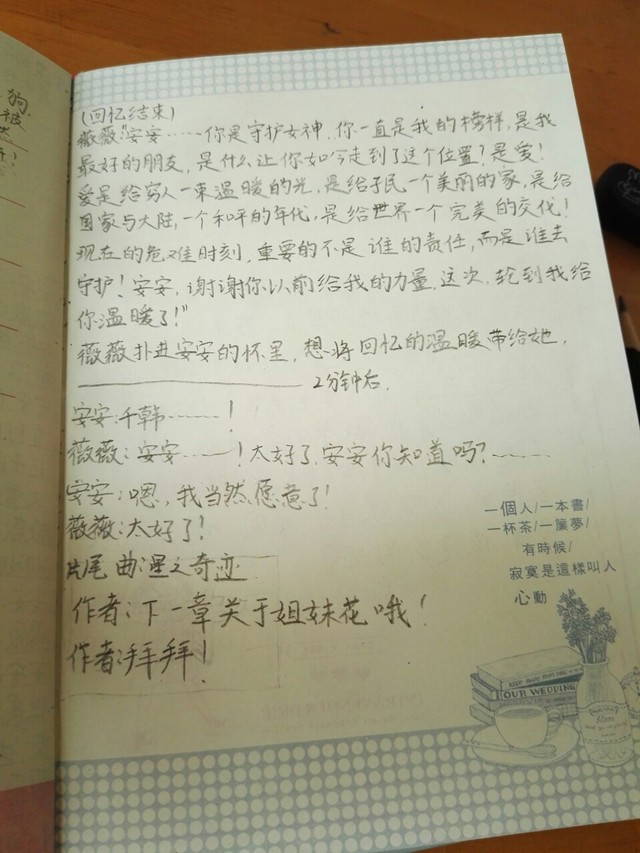 狗
被
(回忆结束)
薇薇:"安安……你是守护女神,你一直是我的榜样,是我
最好的朋友,是什么让你如今走到了这个位置?是爱!
爱是给穷人一束温暖的光,是给子民一个美丽的家,是给
国家与大陆,一个和平的年代,是给世界一个完美的交代!
现在的危难时刻,重要的不是谁的责任,而是谁去
守护!安安,谢谢你以前给我的力量,这次,轮到我给
你温暖了!"
薇薇扑进安安的怀里,想将回忆的温暖带给她,
2分钟后,
安安:千韩……!
薇薇:安安……!太好了,安安你知道吗?……
安安:嗯,我当然愿意了!
薇薇:太好了!
片尾曲:星之奇迹
作者:下一章关于姐妹花哦!
作者:拜拜!
一個人/一本書/
一杯茶/一簾夢/
有時候/
寂寞是這樣叫人
心動
OUR WEDDING